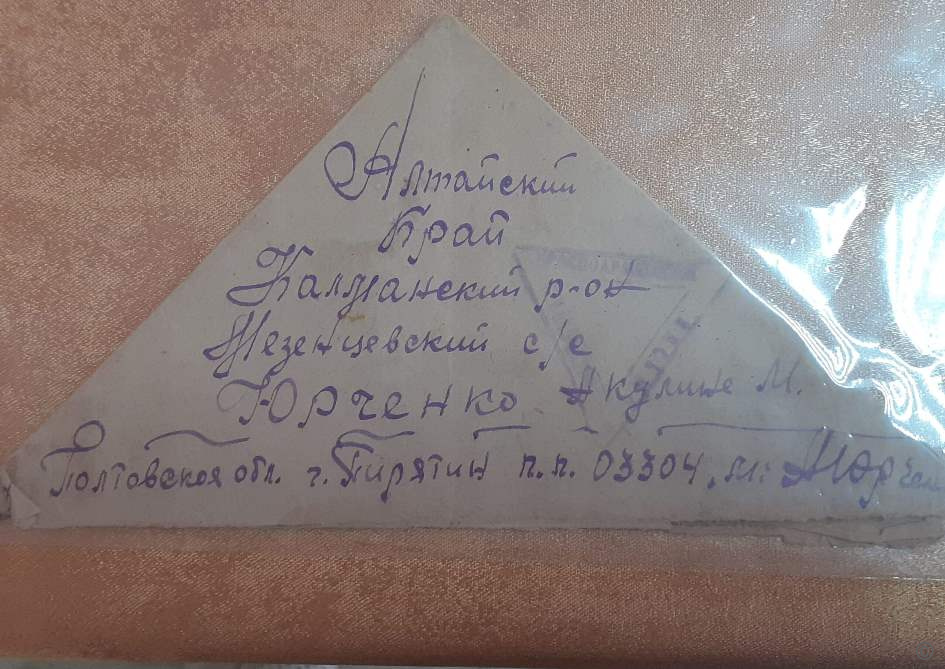 Алтайский
Край
Калманский р-он
Мезенцевский с/с
Юрченко Акулине М.
Полтовская обл. г. Пирятин п.п. 03304, М: